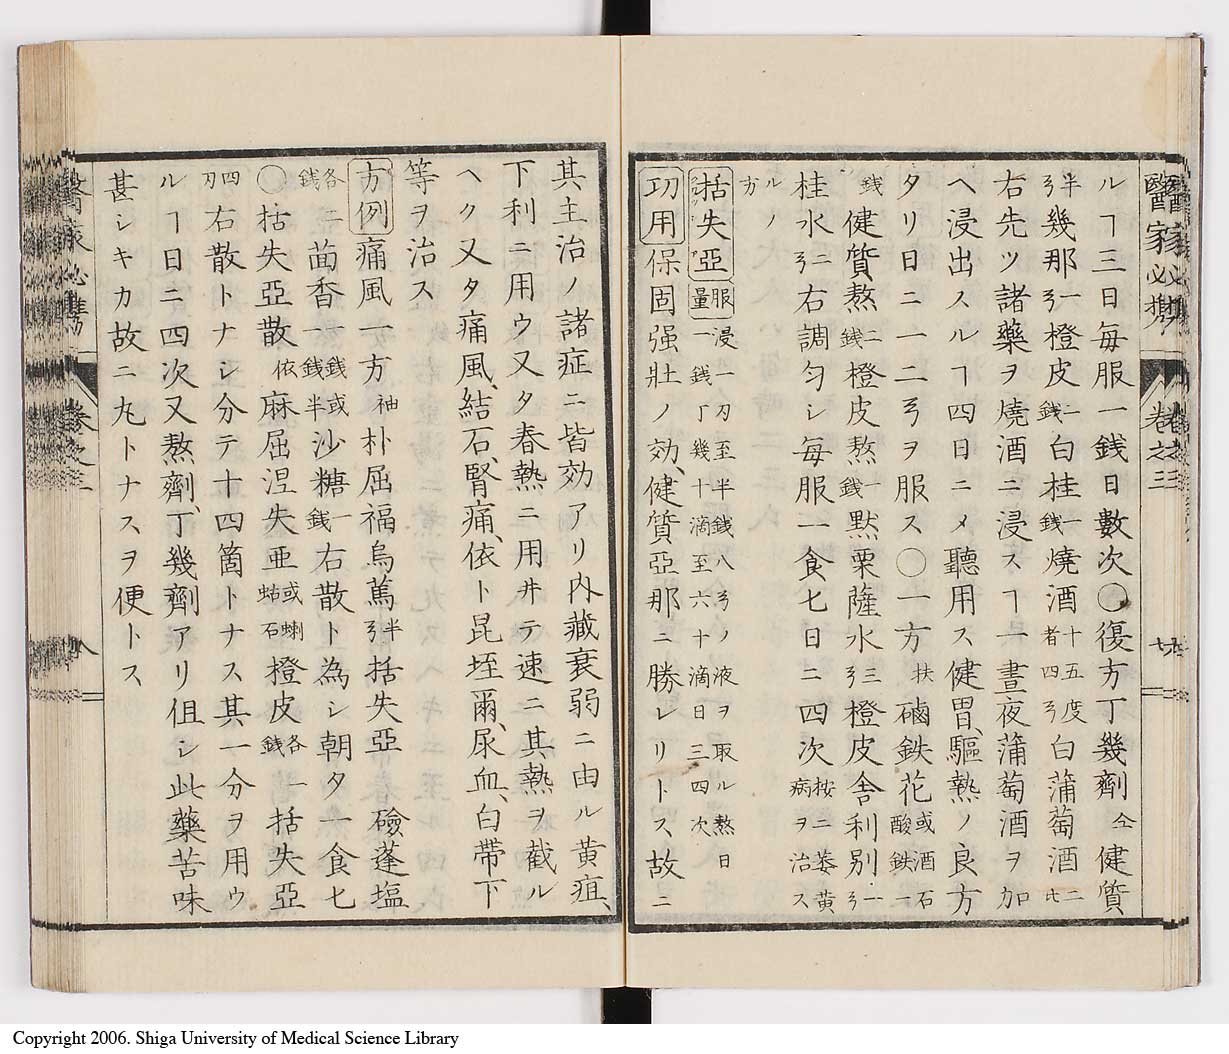 醫家必携 卷之三
ルヿ三日毎服一銭日數次〇復方丁幾劑仝健質
半ゟ幾那一ゟ橙皮二銭白桂一銭燒酒十五度者四ゟ白蒲萄酒二比
右先ツ諸藥ヲ燒酒ニ浸スヿ一晝夜蒲萄酒ヲ加
ヘ浸出スルヿ四日ニメ聽用ス健胃、驅熱ノ良方
タリ日ニ一二ゟヲ服ス〇一方扶礆鉄花或酒石酸鉄一
銭健質熬二銭橙皮熬一銭黙栗薩水三ゟ橙皮舎利別一ゟ
桂水二ゟ右調匀シ毎服一食匕日ニ四次按ニ萎黄病ヲ治ス
ルノ方
括失亞 服量 浸一刃至半銭八ゟノ液ヲ取ル熬日一銭丁幾十滴至六十滴日三四次
功用 保固强壯ノ効、健質亞那ニ勝レリトス故ニ
其主治ノ諸症ニ皆効アリ内藏衰弱ニ由ル黄疸、
下利ニ用ウ又タ春熱ニ用井テ速ニ其熱ヲ截ル
ヘク又タ痛風、結石、腎痛、依ト昆垤爾、尿血、白帶下
等ヲ治ス
方例 痛風一方袖朴屈福烏篤半ゟ括失亞磠蓬塩
各二銭茴香一銭或一銭半沙糖一銭右散ト為シ朝夕一食匕
〇括失亞散依麻屈涅失亜或蝲蛄石橙皮各一銭括失亞
四刃右散トナシ分テ十四箇トナス其一分ヲ用ウ
ルヿ日ニ四次又熬劑、丁幾劑アリ但シ此藥苦味
甚シキカ故ニ丸トナスヲ便トス
醫家必携 卷之三
Copyright 2006. Shiga University of Medical Science Library